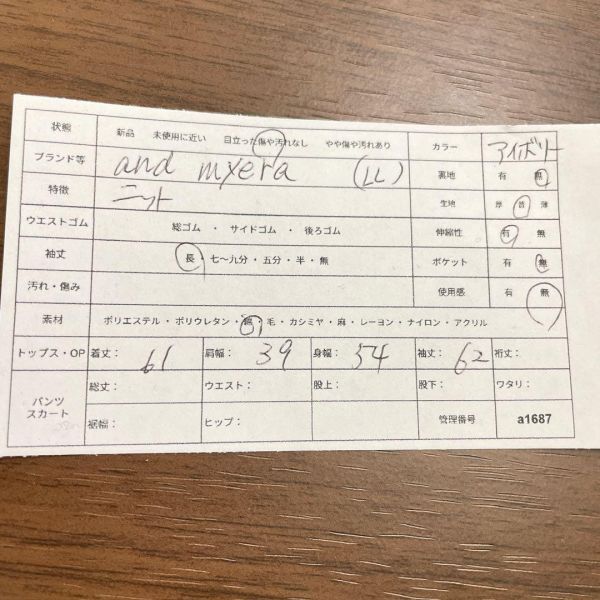 状態 新品 未使用に近い 目立った傷や汚れなし やや傷や汚れあり カラー アイボリー
ブランド等 and myera (LL) 裏地 有 無
特徴 ニット 生地 厚 普 薄
ウエストゴム 総ゴム ・ サイドゴム ・ 後ろゴム 伸縮性 有 無
袖丈 長・七～九分・五分・半・無 ポケット 有 無
汚れ・傷み 使用感 有 無
素材 ポリエステル・ポリウレタン・綿・毛・カシミヤ・麻・レーヨン・ナイロン・アクリル
トップス・OP 着丈: 61 肩幅: 39 身幅: 54 袖丈: 62 裄丈:
パンツ スカート 総丈: ウエスト: 股上: 股下: ワタリ:
裾幅: ヒップ: 管理番号 a1687